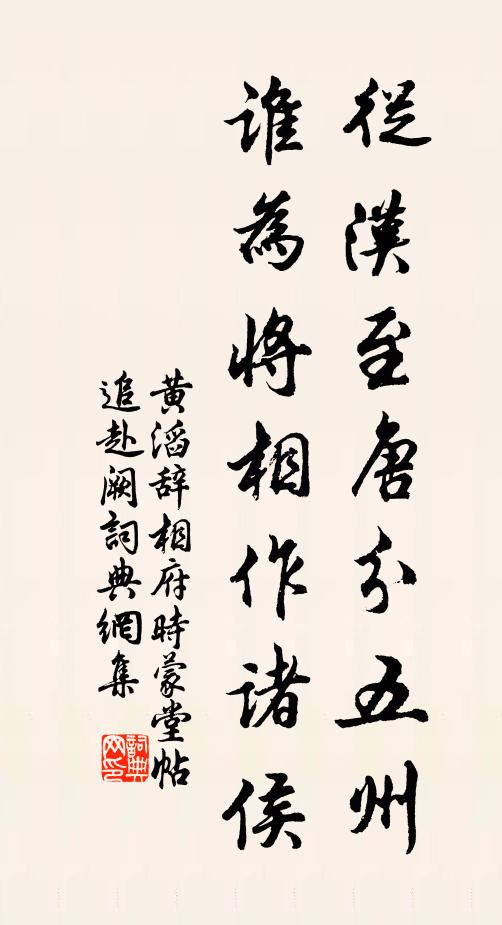 從漢至唐分五州
誰為將相作諸侯
黄滔辞相府時蒙堂帖
追赴阙詞典網集
詞典网印